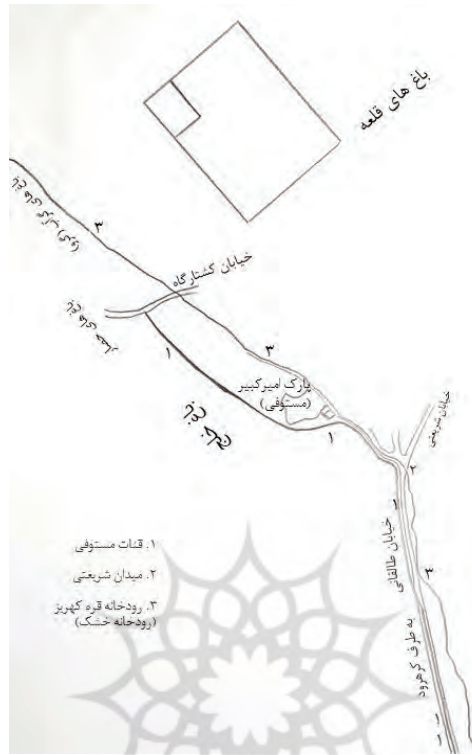 باغ های قلعه
۳
خیابان کشتارگاه
باغ های حصار
۱
۳
پارک امیرکبیر
(مستوفی)
۱
خیابان شریعتی
۲
خیابان طالقانی
۳
به طرف کرهرود
۱. قنات مستوفی
۲. میدان شریعتی
۳. رودخانه قره کهریز
(رودخانه خشک)